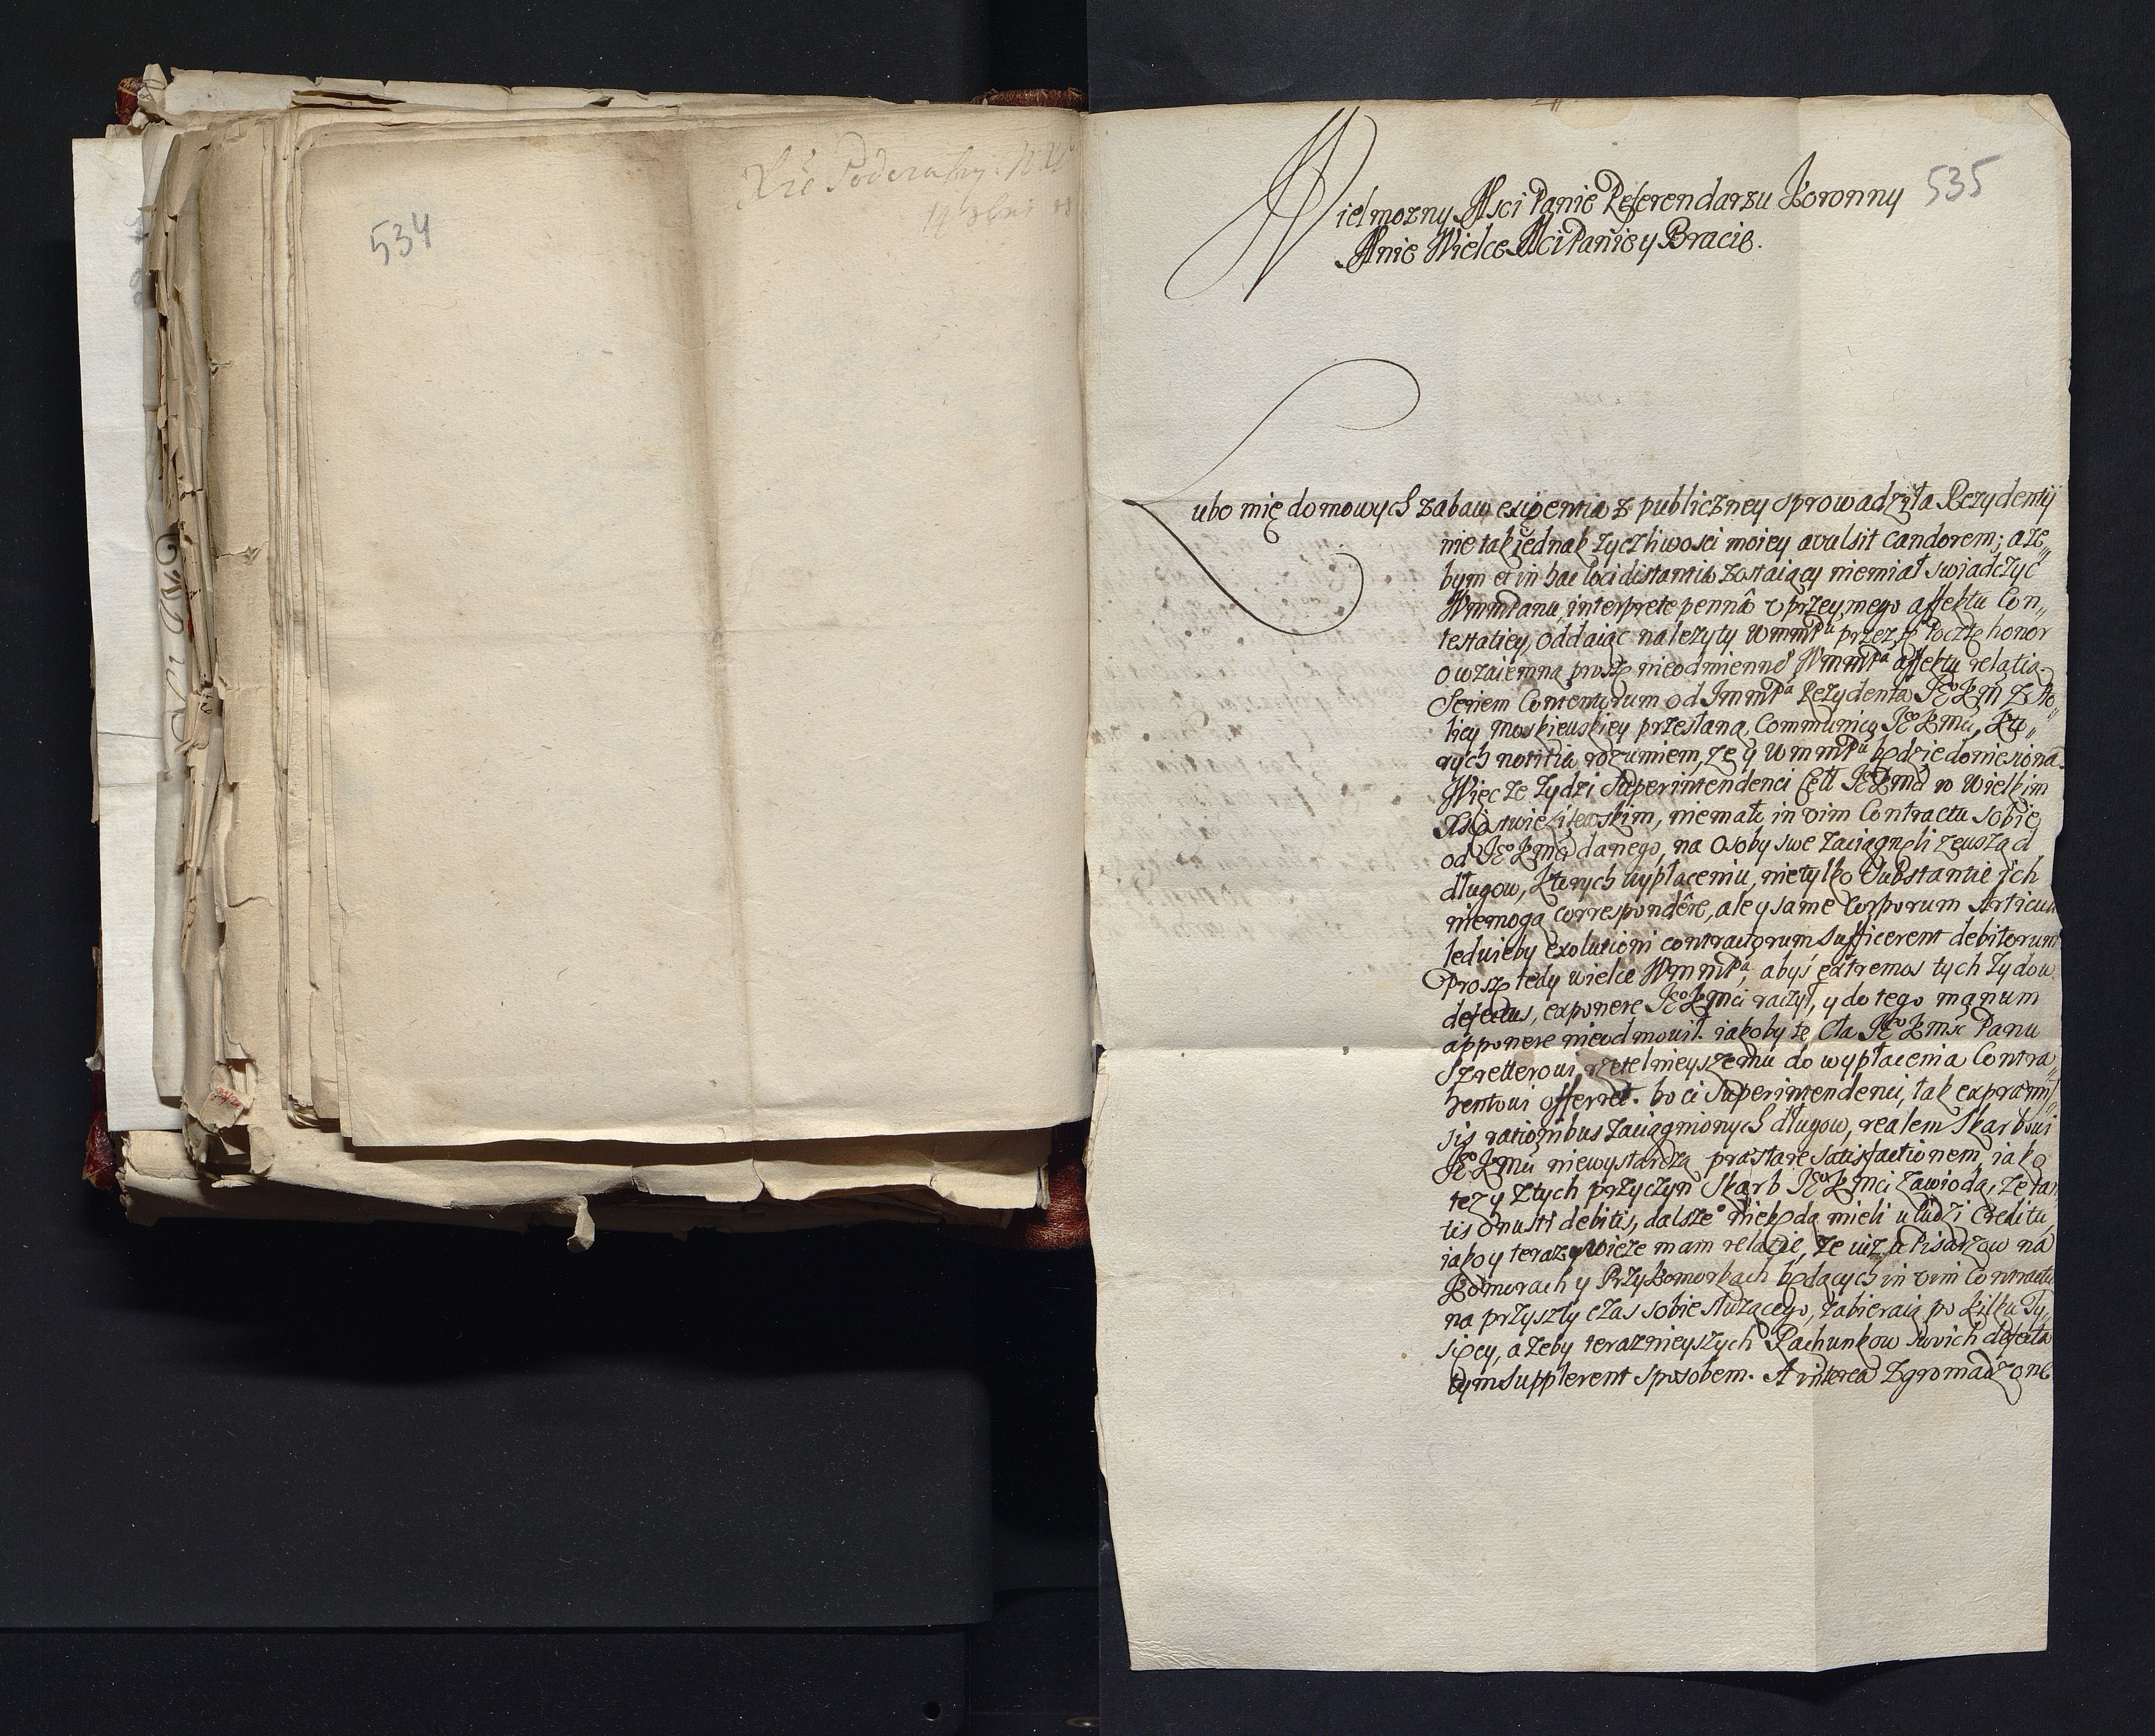 534
535
Wielmozny Msci Panie Referendarzu Koronny
Mnie Wielce Mci Panie y Bracie.
Lubo mię domowych zabaw exigentia z publiczney sprowadziła Rezydentij
nie tak iednak zyczliwosci moiey avulsit candorem; aze„
bym et in hac loci distantia zostaiący niemiał swiadczyc
Wmmpanu, interprete penna vprzeymego affektu Con„
testatiey, oddaiąc nalezyty Wmmpu przez tę Pocztę honor
o wzaiemną proszę nieodmienne Wmmpa affektu relatią.
Seriem Contentorum od Jmmpa Rezydenta JKo Km z Sto„
licy Moskiewskiey przesłaną, Communicą JKo Kmci, Kto„
rych notitia rozumiem, ze y Wmmpu będzie doniesiona.
Więc ze Zydzi Superintendenci Ceł JKo Kmci w Wielkim
Xięstwie Litewskim, niemało in vim Contractu sobie
od JKo Kmci danego, na Osoby swe zaciągnęli zewsząd
długow, Ktorych wypłaceniu, nietylko Substantie ich
niemogą correspondere, ale y same Corporum Articu„
ledwieby exolutioni contractorum sufficerent debitorum
Proszę tedy wielce Wmmpa, abyś extremos tych Zydow
defectus, exponere JKo Kmci raczył, y do tego manum
apponere nieodmowił. iakoby te Cła JKo Kmsc Panu
Szretterowi rzetelnieyszemu do wypłacenia Contra„
hentowi offerret. bo ci Superintendenci, tak ex præmis„
sis rationibus zaciągnionych długow, realem Skarbowi
JKo Kmci niewystarczą præstare satisfactionem, iako
tez y z tych przyczyn Skarb JKo Kmci zawiodą, ze tan„
tis onusti debitis, dalsze° niebędą mieli u ludzi Creditu,
iako y teraz swieze mam relatie, ze iuz u Pisarzow na
Komorach y Przykomorkach będących in vim Contractu
na przyszły czas sobie słuzącego, zabieraią po kilku Ty„
sięcy, azeby teraznieyszych Rachunkow swoich defecta
tym supplerent sposobem. A interea zgromadzone